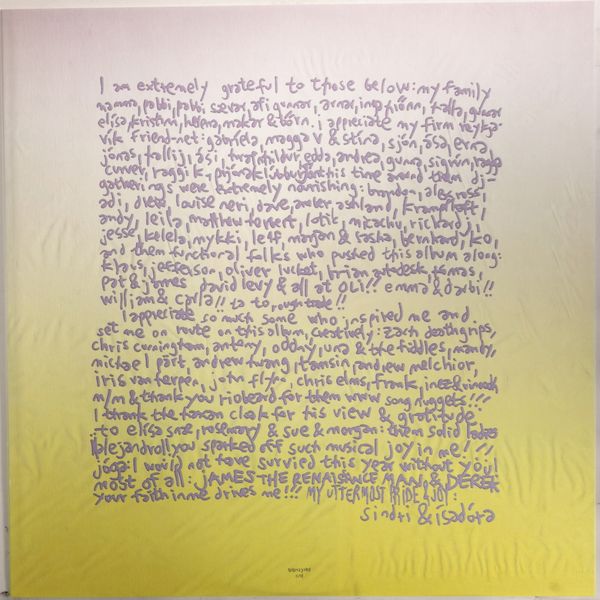 I am extremely grateful to those below: my family
mamma, pabbi, pabbi sævar, afi gunnar, arnar, inga, halla, gunnar
elísa, kristnun, helena, makar & börn. i appreciate my firm reykja-
vík friend-net: gabríela, magga v & stína, sjón, ása, erna,
jónas, ási, edda, andrea, guna, sigrún, ragga
raggi k this time around them dj-
gatherings were extremely nourishing: brandon, alex ross,
adi, drew, louise neri, dave, amber, ashland,
andy, leila, matthew herbert, lotic, mikachu, richard j,
jesse, kelela, mykki, leif, morgan & sasha, bernhard, ko,
and them functional folks who pushed this album along:
jefferson, oliver lucket, brian autodesk, tomas,
pat & james david levy & all at oli!! emma & darbi!!
william & carla!! ta to, rough trade!!
I appreciate so much some who inspired me and
set me on route on this album, creatively: zach deathgrips,
chris cunningham, antony, oddný, una & the fiddles, mandy,
michael part, andrew huang, tamsin, andrew melchior,
iris van herpen, john flynn, chris elms, frank, inez & vinoodh
m/m & thank you riobeard for them www song nuggets!!!
I thank the cloak for his view & gratitude
to elísa rosemary & sue & morgan: them solid ladies
alejandro!! you sparked off such musical joy in me!
jóga: I would not have survied this year without you!
most of all: JAMES-THE RENAISANCE MAN & DEREK
your faith in me drives me!!! MY UTTERMOST PRIDE & JOY:
sindri & ísadóra